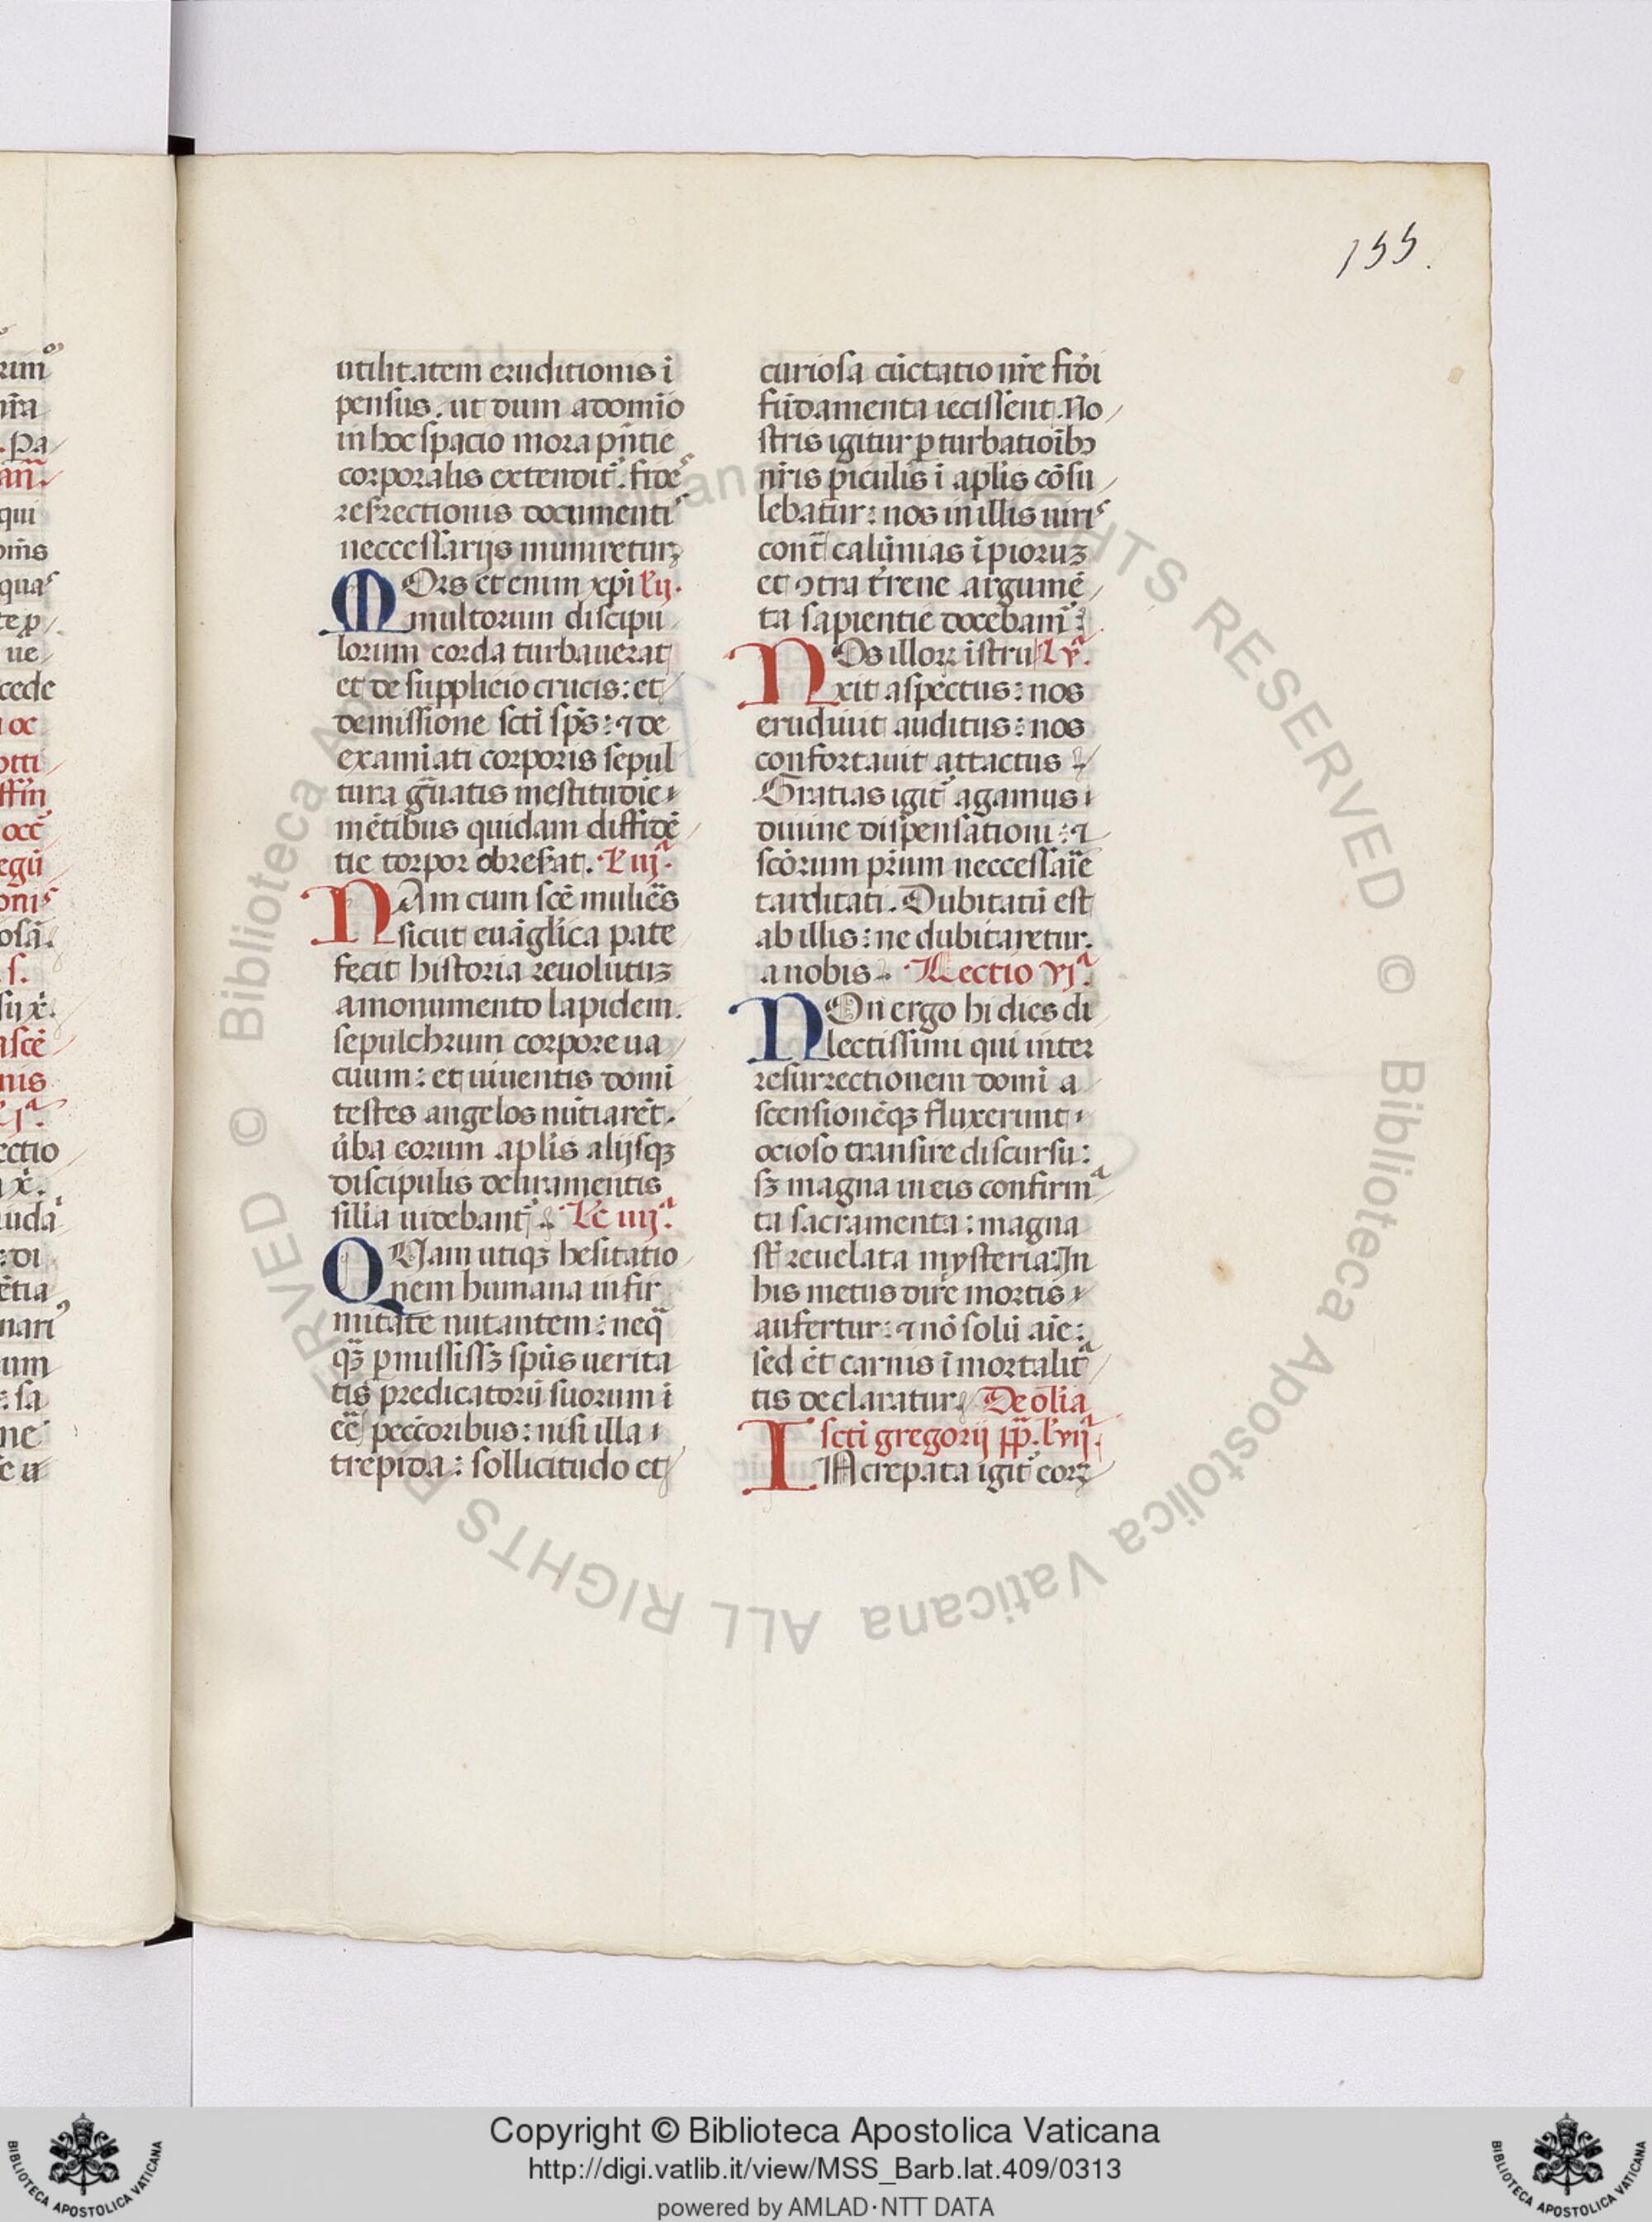 155.
utilitatem eruditionis ī
pensus. ut dum a domīo
in hoc spacio mora pn̄tie
corporalis extendit᷑. fide
resrectionis documentis
neccessarijs muniretur
MOrs etenim xp̄i l'ij.
multorum discipu
lorum corda turbauerat
et de supplicio crucis: et
demissione sc̄ti sp̄s: ⁊ de
exaniati corporis sepul
tura gͣuatis mestitudīe
mētibus quidam diffidē
tie torpor obresꝑat. L' iijª.
NAm cum sc̄e mulieˢs
sicut euāglica pate
fecit historia reuolutuꝫ
a monumento lapidem.
sepulchrum corpore ua
cuum: et uiuentis domī
testes angelos nūtiarēt.
u̇ba eorum apl̄is alijsqꝫ
discipulis deliramentis
silia uidebant᷑. Lc̄ iiijª.
QUam utiqꝫ hesitatio
nem humana infir
mitate nutantem: neqͣ
qͣꝫ ꝑmisissꝫ sp̄us uerita
tis predicatorū suorum ī
eē pectoribus: nisi illa
trepida: sollicitudo et
curiosa cūctatio nr̄e fidi
fūdamenta iecissent. No
stris igitur ꝑturbatioībꝫ
nr̄is ꝑiculis ī apl̄is cōsu
lebatur: nos in illis uiris
cont̄ calūnias īpioruꝫ
et ꝯtra t̄rene argumē
ta sapientie docebam᷑
NOs illoꝝ īstru L' vª.
xit aspectus: nos
erudiuit auditus: nos
confortauit attactus
Gratias igit᷑ agamus
diuine dispensationi: ⁊
sc̄orum pr̄um neccessaīe
tarditati. Dubitatū est
ab illis: ne dubitaretur.
a nobis. Lectio vjª.
NOn ergo hi dies di
lectissimi qui inter
resurrectionem domī a
scensionēqꝫ fluxerunt
ocioso transire discursu:
sꝫ magna in eis confirmª
ta sacramenta: magna
st̄ reuelata mysteria: In
his metus dire mortis
aufertur: ⁊ nō solū aīe:
sed ēt carnis īmortalitª
tis declaratur. De ol̄ia
sc̄ti gregorij pp̄. l'vijª.
INcrepata igit᷑ eoꝝ
Copyright © Biblioteca Apostolica Vaticana
http://digi.vatlib.it/view/MSS_Barb.lat.409/0313
powered by AMLAD·NTT DATA